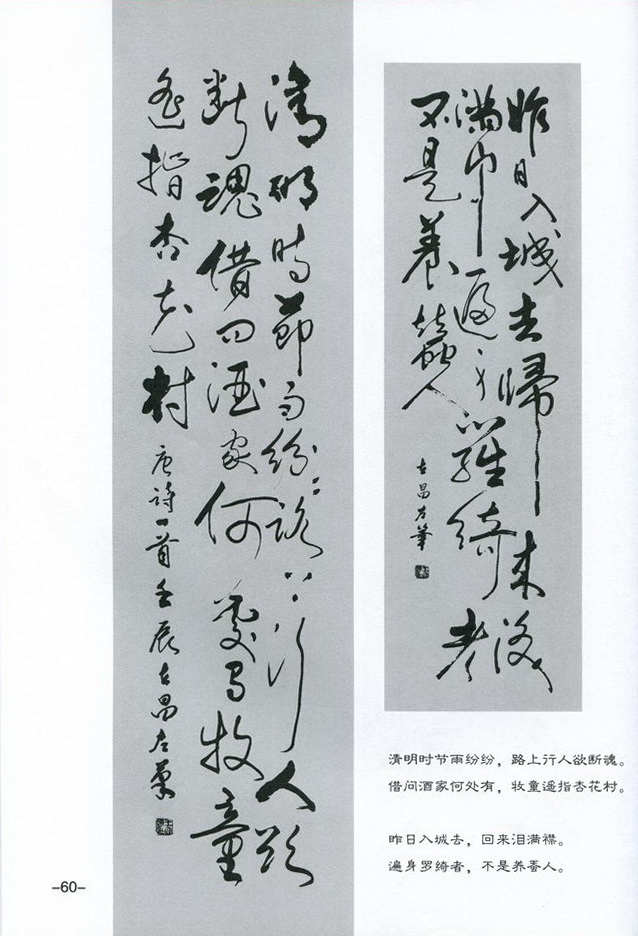 昨日入城去歸来淚
滿巾遍身羅綺者
不是養蠶人
古昌左筆
清明时節雨纷纷路上行人欲
断魂借问酒家何處有牧童
遥指杏花村
唐詩一首壬辰古昌左筆
清明时节雨纷纷，路上行人欲断魂。
借问酒家何处有，牧童遥指杏花村。
昨日入城去，回来泪满襟。
遍身罗绮者，不是养香人。
-60-